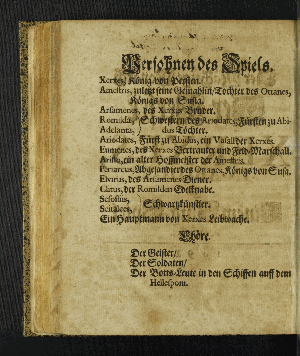 Persohnen des Spiels.
Xerxes/ König von Persien.
Amestris, zuletzt seine Gemahlin/ Tochter des Ottanes,
Königs von Susa.
Arsamenes, des Xerxes Bruder.
Romilda, / Schwestern des Ariodates, Fürsten zu Abi-
Adelanta, / dus Töchter.
Ariodates, Fürst zu Abidus, ein Vasall der Xerxes.
Eumenes, des Xerxes Vertrauter und Feld-Marschall.
Aristo, ein alter Hoffmeister der Amestris.
Periarcus, Abgesandter des Ottanes, Königs von Susa.
Elvirus, des Arsamenes Diener.
Clatus, der Romilden Edelknabe.
Sesostus,
Scitalces, Schwartzkünstler.
Ein Hauptmann von Xerxes Leibwache.
Chöre.
Der Geister/
Der Soldaten/
Der Botts-Leute in den Schiffen auff dem
Hellespont.